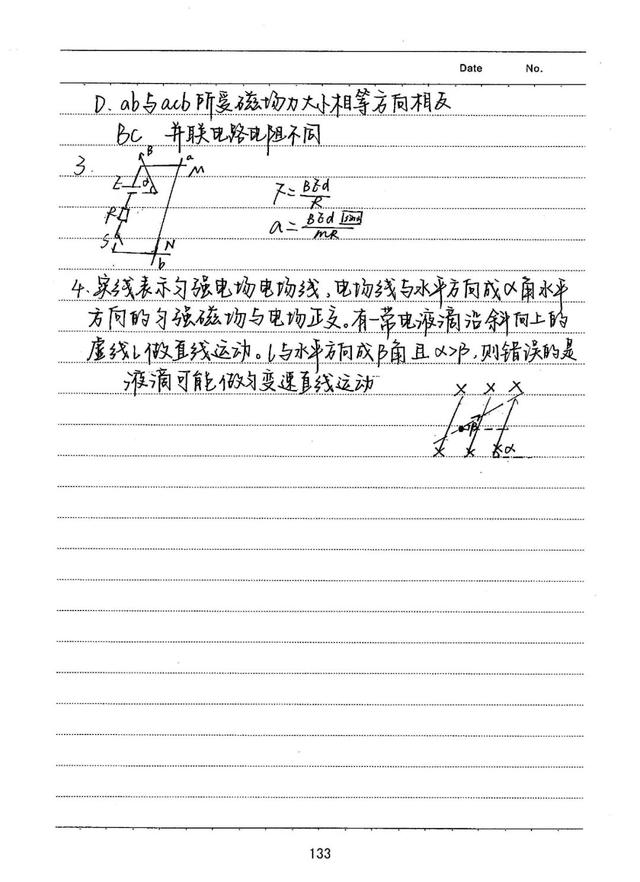 Date No.
D. ab与acb所受磁场力大小相等方向相反
BC 并联电路电阻不同
3.
B a
E θ M
R
S N
b
F=BEd/R
a=BEd sinθ/mR
4. 实线表示匀强电场电场线,电场线与水平方向成α角水平
方向的匀强磁场与电场正交。有一带电液滴沿斜向上的
虚线L做直线运动。l与水平方向成β角且α>β,则错误的是
液滴可能做匀变速直线运动
× × ×
β
× × × α
133